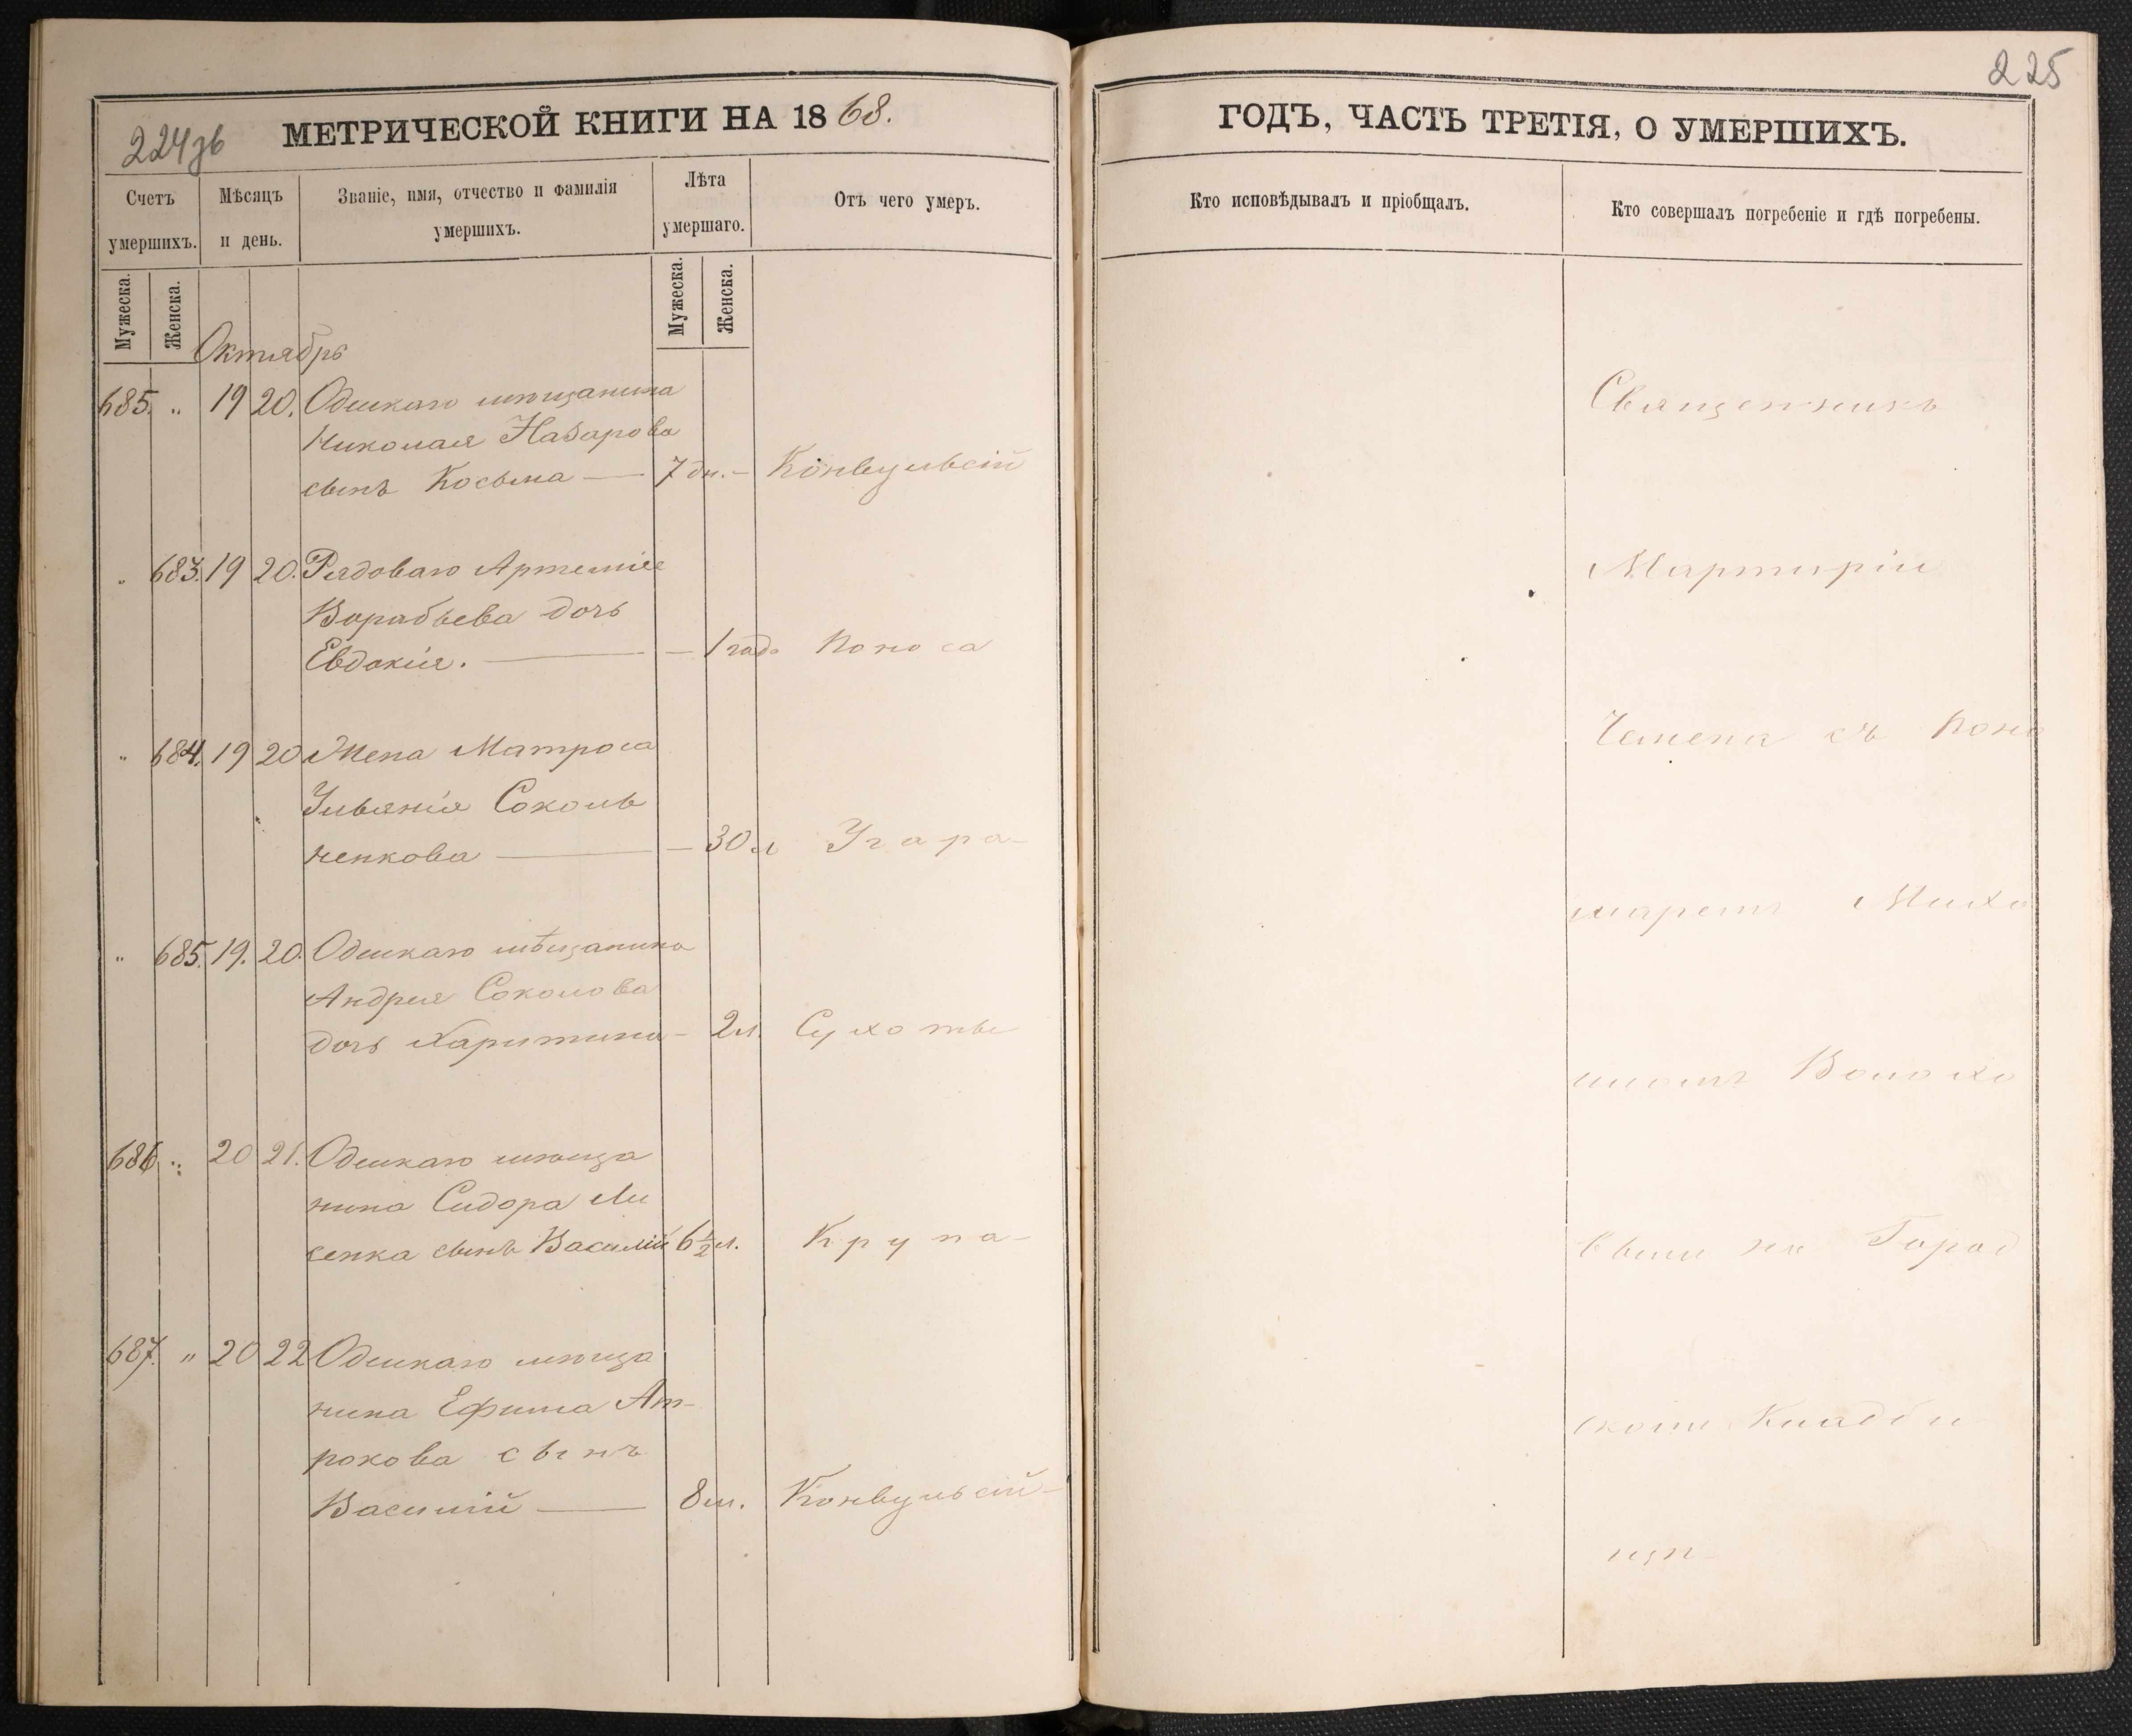 224зв
МЕТРИЧЕСКОЙ КНИГИ НА 1868.
Счетъ умершихъ.
Мѣсяцъ и день.
Званіе, имя, отчество и фамилія умершихъ.
Лѣта умершаго.
Отъ чего умеръ.
Мужеска.
Женска.
Мужеска.
Женска.
Октябрь
685. " 19 20. Одескаго мѣщанина
Николая Назарова
сынъ Косьма — 7 дн. – Конвульсій
" 683. 19 20. Рядоваго Артемія
Воробьева дочь
Евдокія. — – 1 годъ Поноса
" 684. 19 20 Жена Матроса
Ульянія Соколь
ненкова — – 30 л Угара
" 685. 19. 20. Одескаго мѣщанина
Андрея Соколова
дочь Харитина – 2 л. Сухоты
686 " 20 21. Одескаго мѣща
нина Сидора Ли
сенка сынъ Василій 6 1/2 л. Крупа
687. " 20 22 Одескаго мѣща
нина Ефима Ат-
рохова сынъ
Василій — 8 м. Конвульсій
225
ГОДЪ, ЧАСТЬ ТРЕТІЯ, О УМЕРШИХЪ.
Кто исповѣдывалъ и пріобщалъ.
Кто совершалъ погребеніе и гдѣ погребены.
Священникъ
Мартирій
Чемена съ Поно
маремъ Миха
иломъ Волохо
вымъ на Город
скомъ Кладби
щѣ